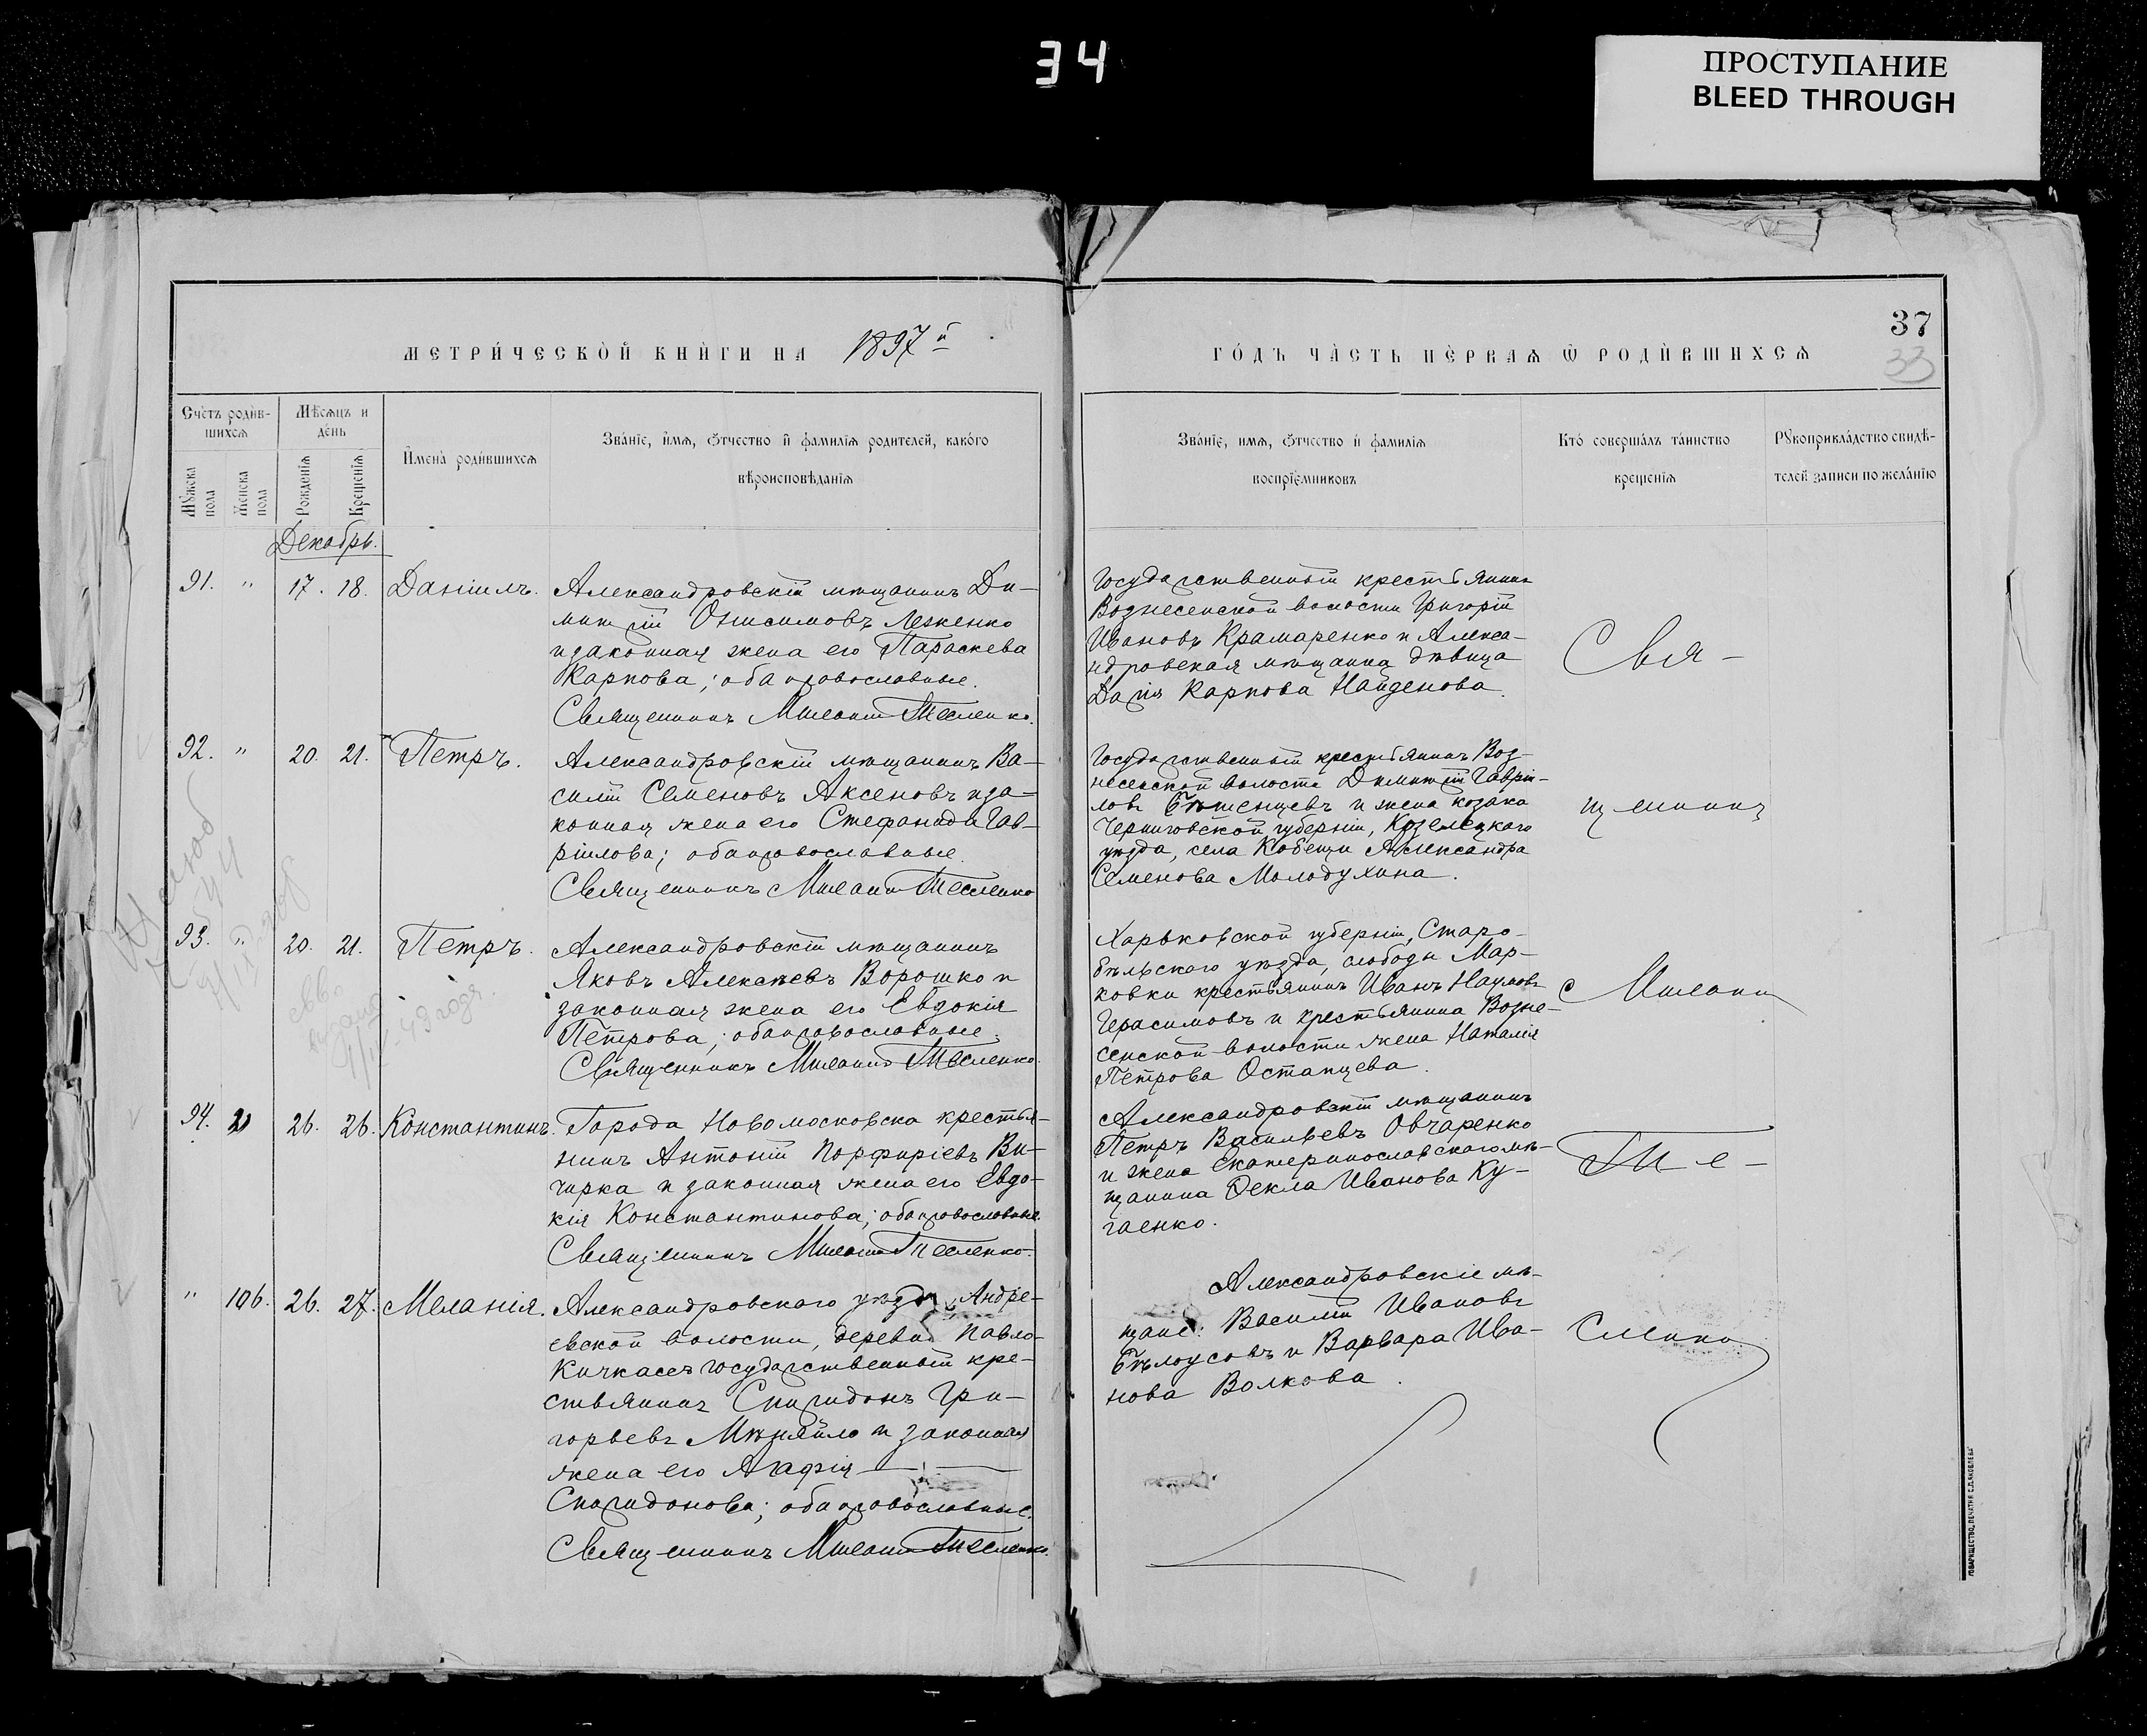 34
ПРОСТУПАНИЕ
BLEED THROUGH
37
33
МЕТРИ́ЧЕСКОЙ КНИ́ГИ НА 1897й
ГО́ДЪ ЧА́СТЬ ПЕ́РВАѦ Ѡ РОДИ́ВШИХСѦ
Сче́тъ роди́в-
шихсѧ
Мꙋ́жска
пола
Женска
пола
Мѣ́сѧцъ и
де́нь
Рожденїѧ
Крещенїѧ
И҆мена̀ роди́вшихсѧ
Зва́нїе, и҆́мѧ, ѻ҆́тчество и҆ фамилїѧ родителей, како́го
вѣроисповѣданїѧ
Зва́нїе, имѧ, ѻ҆́тчество и҆ фамилїѧ
воспрїе́мниковъ
Кто́ соверша́лъ та́инство
крещенїѧ
Рꙋкоприкла́дство свидѣ́-
телей записи по жела́нїю
Декабрь.
91. " 17. 18. Даніилъ.
Александровскій мѣщанинъ Ди-
митрій Онисимовъ Леженко
и законная жена его Параскева
Карпова; оба православные.
Священникъ Милетій Тесленко.
Государственный крестьянинъ
Вознесенской волости Григорій
Ивановъ Крамаренко и Алекса-
ндровская мѣщанка дѣвица
Дарія Карпова Найденова.
Свя-
92. " 20. 21. Петръ.
Александровскій мѣщанинъ Ва-
силій Семеновъ Аксеновъ и за-
конная жена его Стефанида Гав-
ріилова; оба православные.
Священникъ Милетій Тесленко
Государственный крестьянинъ Воз-
несенской волости Димитрій Гаврі-
ловъ и жена козака
Черниговской губерніи, Козелецкаго
уѣзда, села Кобещи Александра
Семенова Молодухина.
щенникъ
93. " 20. 21. Петръ.
Александровскій мѣщанинъ
Яковъ Алексѣевъ Ворошко и
законная жена его Евдокія
Петрова; оба православные.
Священникъ Милетій Тесленко.
Харьковской губерніи, Старо-
бѣльскаго уѣзда, слободы Мар-
ковки крестьянинъ Иванъ Наумовъ
Герасимовъ и крестьянина Возне-
сенской волости жена Наталія
Петрова Остапцева.
Милетій
94. 26. 26. Константинъ.
Города Новомосковска крестья-
нинъ Антоній Порфиріевъ Ви-
чирка и законная жена его Евдо-
кія Константинова; оба православные.
Священникъ Милетій Тесленко.
Александровскій мѣщанинъ
Петръ Васильевъ Овчаренко
и жена Екатеринославскаго мѣ-
щанина Ѳекла Иванова Ку-
гаенко.
Те-
" 106. 26. 27. Меланія.
Александровскаго уѣзда, Андре-
евской волости, деревни Павло-
Кичкасъ государственный кре-
стьянинъ Спиридонъ Гри-
горьевъ Мѣняйло и законная
жена его Агафія
Спиридонова; оба православные.
Священникъ Милетій Тесленко.
Александровскіе мѣ-
щане: Василій Ивановъ
Бѣлоусовъ и Варвара Ива-
нова Волкова.
сленко
ТОВАРИЩЕСТВО „ПЕЧАТНЯ С.П.ЯКОВЛЕВА“